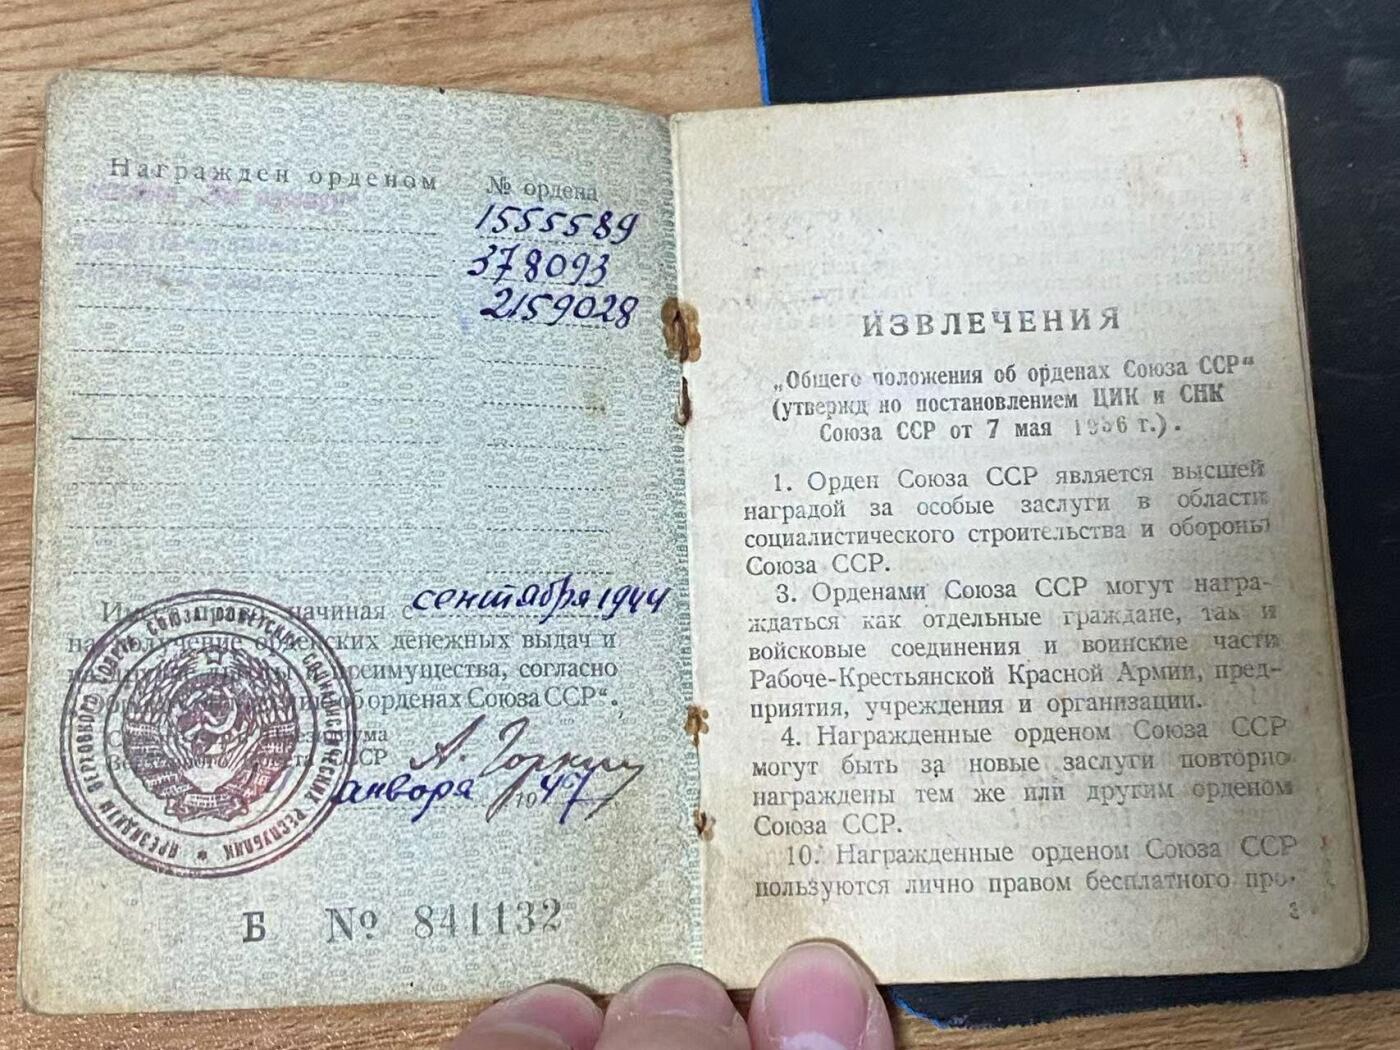 Награжден орденом № ордена
1555589
378093
2159028
начиная с сентября 1944
на получение орденских денежных выдач и
преимущества, согласно
об орденах Союза ССР“.
А. Горкин
января 1947
ПРЕЗИДИУМ ВЕРХОВНОГО СОВЕТА СОЮЗА СОВЕТСКИХ СОЦИАЛИСТИЧЕСКИХ РЕСПУБЛИК
Б № 841132
ИЗВЛЕЧЕНИЯ
„Общего положения об орденах Союза ССР“
(утвержд но постановлением ЦИК и СНК
Союза ССР от 7 мая 1936 г.).
1. Орден Союза ССР является высшей
наградой за особые заслуги в области
социалистического строительства и обороны
Союза ССР.
3. Орденами Союза ССР могут награ-
ждаться как отдельные граждане, так и
войсковые соединения и воинские части
Рабоче-Крестьянской Красной Армии, пред-
приятия, учреждения и организации.
4. Награжденные орденом Союза ССР
могут быть за новые заслуги повторно
награждены тем же или другим орденом
Союза ССР.
10. Награжденные орденом Союза ССР
пользуются лично правом бесплатного про-
3